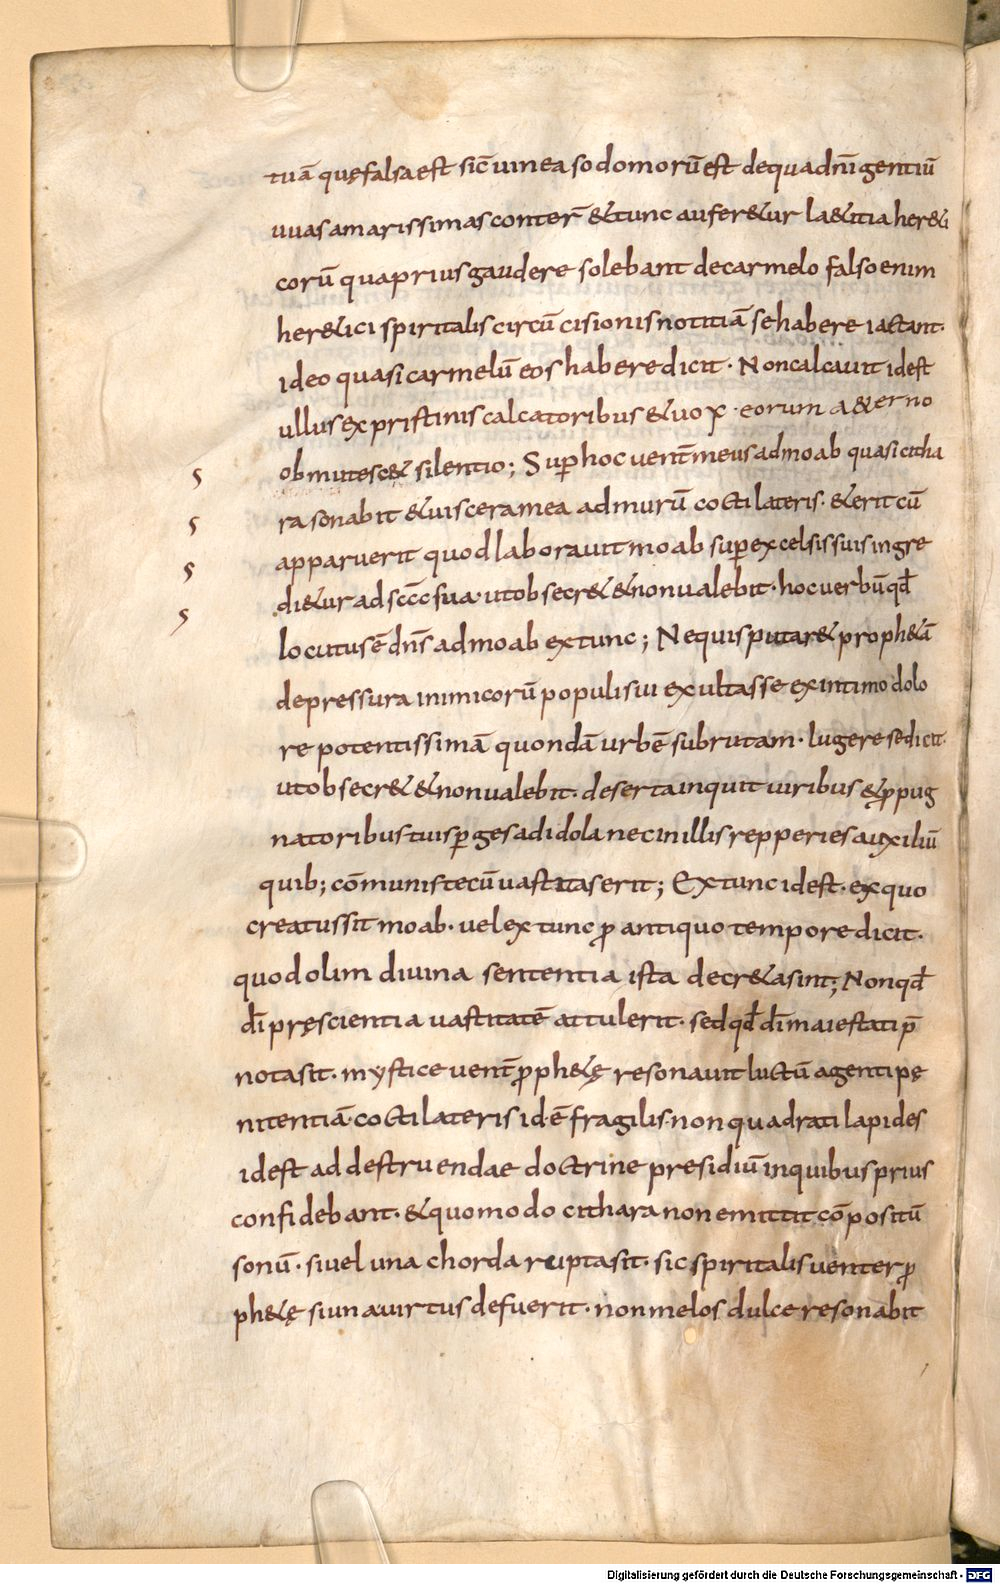 tuā quęfalsaest sic̄ uineasodomorūest dequadn̄igentiū
uuasamarissimasconter̄ &tunc aufer&ur la&itia her&i
corū quapriusgaudere solebant decarmelo falsoenim
her&ici spiritalis circū cisionisnotitiā sehabere iactant·
ideo quasicarmelū eos haberedicit· Noncalcauit idest
ullusexpristinis calcatoribus &uox · eorum a&erno
obmutesc& silentio; Suꝑhoc uent̄meusadmoab quasicitha
ra sonabit &uisceramea admurū coctilateris· &erit cū
apparuerit quodlaborauitmoab suꝑexcelsissuisingre
di&ur ad sccc̄ sua· utobsecr& &nonualebit· hocuerbūqđ
locutusē dn̄s admoab extunc; Nequisputar& proph&ā
depressura inimicorū populisui exultasse exintimodolo
re potentissimā quondā urbē subrutam· lugeresedicit·
utobsecr& &nonualebit· desertainquit uiribus &ꝓpug
natoribustuisꝑgesadidolanecinillisrepperiesauxiliū
quib; cōmunistecūuastitaserit; Extuncidest· exquo
creatussit moab· uelextunc ꝓ antiquo tempore dicit·
quodolim diuina sententia ista decr&asint; Nonqđ
dī pręscientia uastitatē attulerit· sedqđ dīmaiestatip̄
notasit· mystice uent̄ ꝓph&ę resonauitluctū agentipę
nitentiā coctilateris idē fragilis· nonquadratilapides
idest addestruendae doctrine presidiū inquibusprius
confidebant· &quomodo cithara non emittit cōpositū
sonū· siuel una chorda ruptasit· sic spiritalisuenterꝓ
ph&ę siunauirtus defuerit· nonmelos dulce resonabit
Digitalisierung gefördert durch die Deutsche Forschungsgemeinschaft - DFG